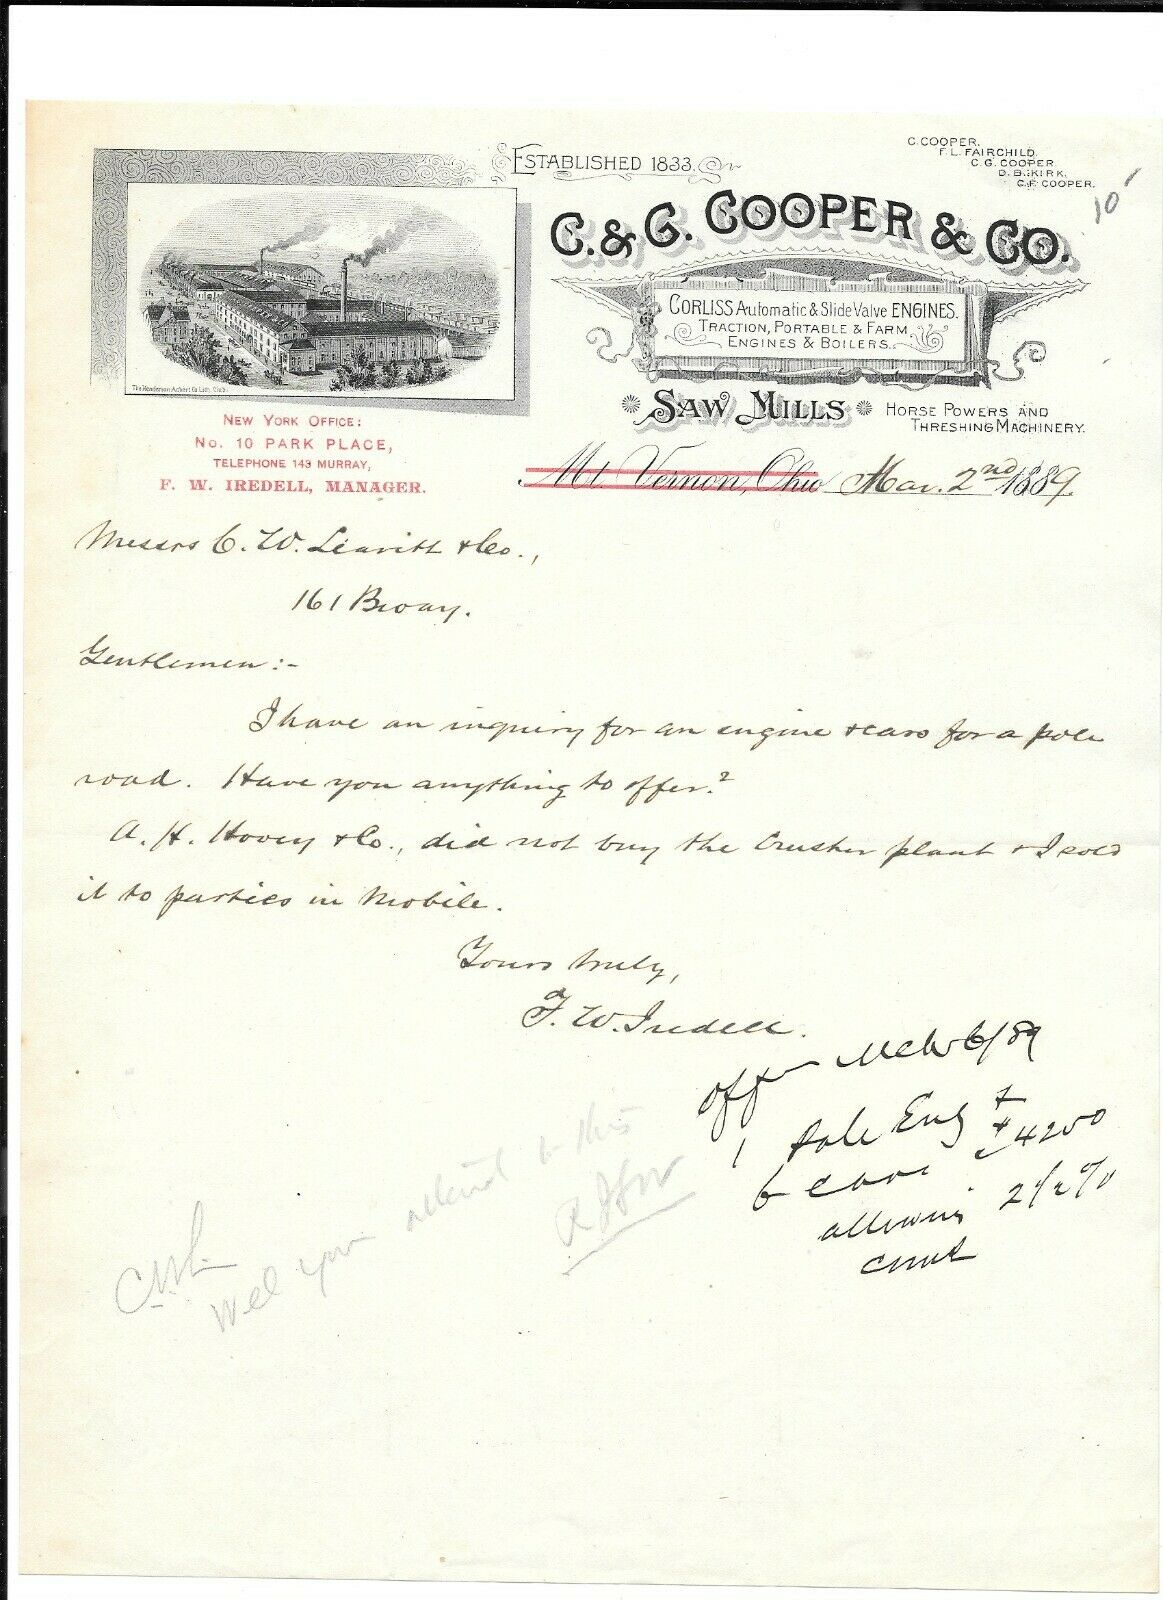 ESTABLISHED 1833.
C. COOPER.
F. L. FAIRCHILD.
C. G. COOPER.
D. B. KIRK.
C. F. COOPER.
10
C. & G. COOPER & CO.
CORLISS Automatic & Slide Valve ENGINES.
TRACTION, PORTABLE & FARM
ENGINES & BOILERS.
SAW MILLS
HORSE POWERS AND
THRESHING MACHINERY.
NEW YORK OFFICE:
No. 10 PARK PLACE,
TELEPHONE 143 MURRAY,
F. W. IREDELL, MANAGER.
Mt. Vernon, Ohio Mar. 2nd 1889.
Messrs C. W. Leavitt & Co.,
161 Bway.
Gentlemen:-
I have an inquiry for an engine & cars for a pole
road. Have you anything to offer?
A. H. Hovey & Co., did not buy the Crusher plant & I sold
it to parties in Mobile.
Yours truly,
F. W. Iredell.
offer 6/89
1 Pole Eng
6 cars $4200
allowing 2 1/2 %
Will you attend to this